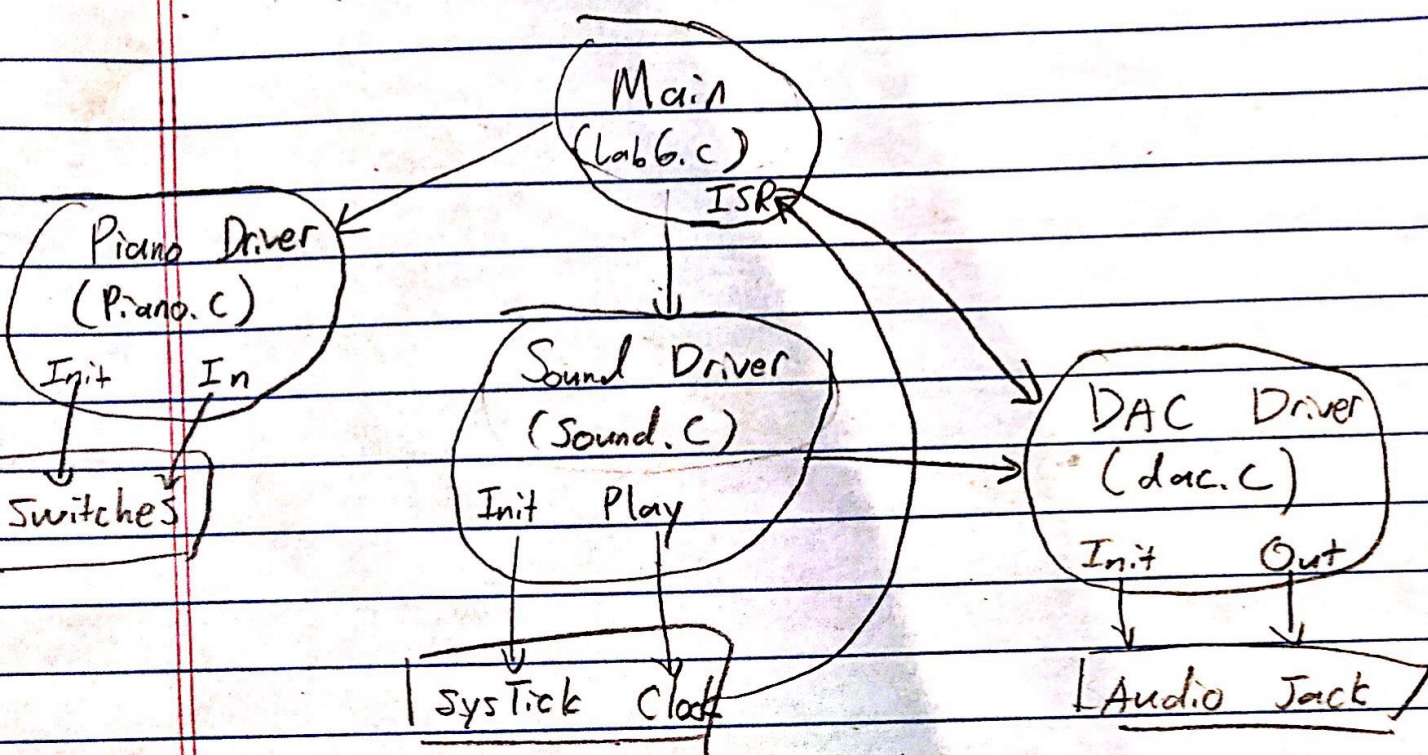 Main
(Lab6.c)
ISR
Piano Driver
(Piano.c)
Init In
Switches
Sound Driver
(Sound.c)
Init Play
SysTick Clock
DAC Driver
(dac.c)
Init Out
Audio Jack